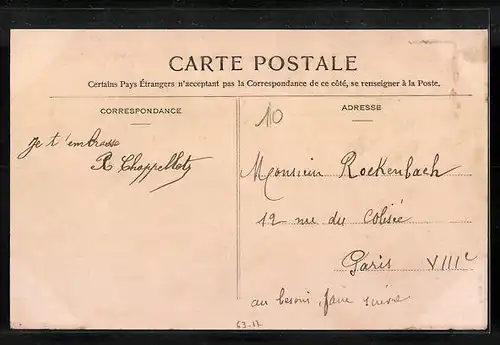 CARTE POSTALE
Certains Pays Étrangers n'acceptant pas la Correspondance de ce côté, se renseigner à la Poste.
CORRESPONDANCE
ADRESSE
10
je t'embrasse
R Chappellotz
Monsieur Rockenbach
12 rue du Colisée
Paris VIIIe
au besoin, faire suivre
63-12